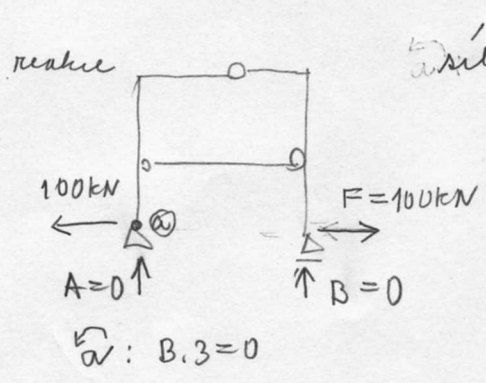 reakce
síl
100kN
a
F=100kN
A=0
B=0
a: B.3=0